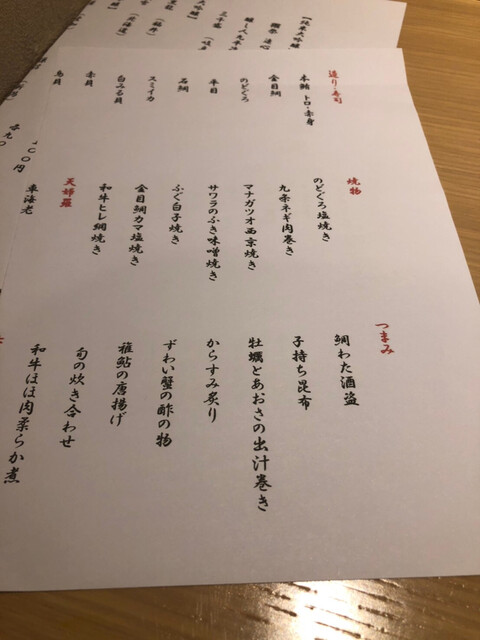 造り・寿司
本鮪 トロ・赤身
金目鯛
のどぐろ
平目
石鯛
スミイカ
白みる貝
赤貝
鳥貝
焼物
のどぐろ塩焼き
九条ネギ肉巻き
マナガツオ西京焼き
サワラのふき味噌焼き
ふぐ白子焼き
金目鯛カマ塩焼き
和牛ヒレ網焼き
天婦羅
車海老
つまみ
鯛わた酒盗
子持ち昆布
牡蠣とあおさの出汁巻き
からすみ炙り
ずわい蟹の酢の物
稚鮎の唐揚げ
旬の炊き合わせ
和牛ほほ肉柔らか煮